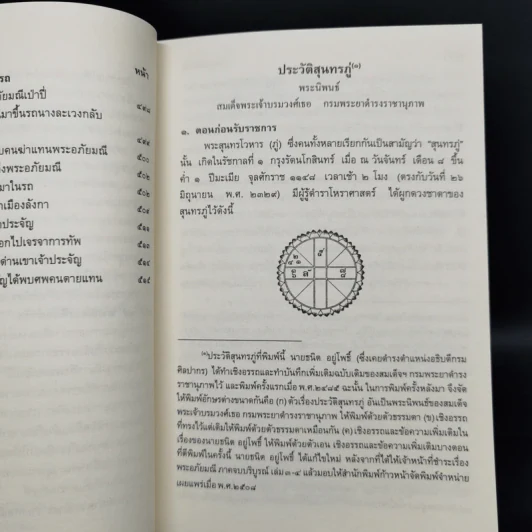 หน้า
รถ
ภัยมณีเป่าปี่
มาขึ้นรถนางละเวงกลับ
๔๙๘
คนฆ่าแทนพระอภัยมณี
๔๙๙
งพระอภัยมณี
๕๐๐
มาในรถ
๕๐๒
าเมืองลังกา
๕๐๔
าประจัญ
๕๑๑
อกไปเจรจาการทัพ
๕๑๓
ด่านเขาเจ้าประจัญ
๕๑๔
ัญได้พบศพคนตายแทน
๕๑๕
ประวัติสุนทรภู่(๑)
พระนิพนธ์
สมเด็จพระเจ้าบรมวงศ์เธอ กรมพระยาดำรงราชานุภาพ
๑. ตอนก่อนรับราชการ
พระสุนทรโวหาร (ภู่) ซึ่งคนทั้งหลายเรียกกันเป็นสามัญว่า "สุนทรภู่"
นั้น เกิดในรัชกาลที่ ๑ กรุงรัตนโกสินทร์ เมื่อ ณ วันจันทร์ เดือน ๘ ขึ้น
ค่ำ ๑ ปีมะเมีย จุลศักราช ๑๑๔๘ เวลาเช้า ๒ โมง (ตรงกับวันที่ ๒๖
มิถุนายน พ.ศ. ๒๓๒๙) มีผู้รู้ตำราโหราศาสตร์ ได้ผูกดวงชาตาของ
สุนทรภู่ไว้ดังนี้
(๑)ประวัติสุนทรภู่ที่พิมพ์นี้ นายธนิต อยู่โพธิ์ (ซึ่งเคยดำรงตำแหน่งอธิบดีกรม
ศิลปากร) ได้ทำเชิงอรรถและทำบันทึกเพิ่มเติมฉบับเดิมของสมเด็จฯ กรมพระยาดำรง
ราชานุภาพไว้ และพิมพ์ครั้งแรกเมื่อ พ.ศ.๒๔๘๕ ฉะนั้น ในการพิมพ์ครั้งหลังมา จึงจัด
ให้พิมพ์อักษรต่างขนาดกันคือ (ก) ตัวเรื่องประวัติสุนทรภู่ อันเป็นพระนิพนธ์ของสมเด็จ
พระเจ้าบรมวงศ์เธอ กรมพระยาดำรงราชานุภาพ ให้พิมพ์ด้วยตัวธรรมดา (ข) เชิงอรรถ
ที่ทรงไว้แต่เดิมให้พิมพ์ด้วยตัวธรรมดาเหมือนกัน (ค) เชิงอรรถและข้อความเพิ่มเติมใน
เรื่องของนายธนิต อยู่โพธิ์ ให้พิมพ์ด้วยตัวเอน เชิงอรรถและข้อความเพิ่มเติมบางตอน
ที่ตีพิมพ์ในครั้งนี้ นายธนิต อยู่โพธิ์ ได้แก้ไขใหม่ หลังจากที่ได้ให้เจ้าหน้าที่ชำระเรื่อง
พระอภัยมณี ภาคจบบริบูรณ์ เล่ม ๓-๔ แล้วมอบให้สำนักพิมพ์ก้าวหน้าจัดพิมพ์จำหน่าย
เผยแพร่เมื่อ พ.ศ.๒๕๐๘